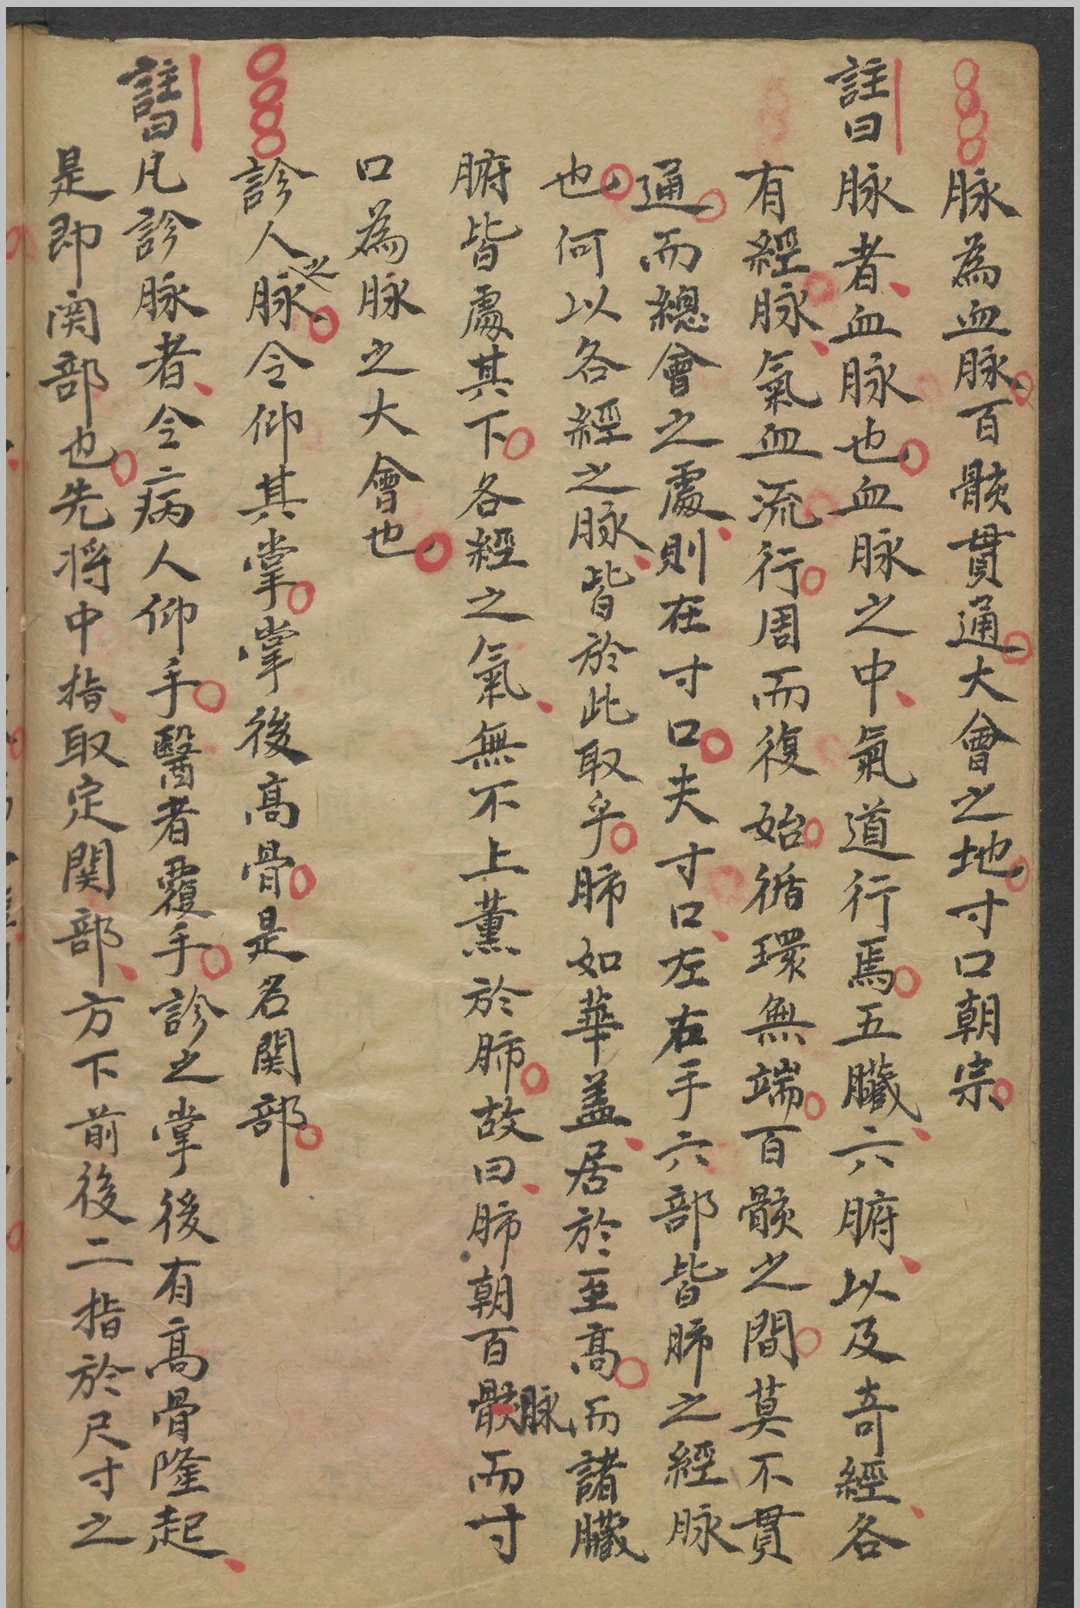 脉為血脉百骸貫通大會之地寸口朝宗
註曰脉者血脉也血脉之中氣道行焉五臟六腑以及奇經各
有經脉氣血流行周而復始循環無端百骸之間莫不貫
通而總會之處則在寸口夫寸口左右手六部皆肺之經脉
也何以各經之脉皆於此取乎肺如華盖居於至高而諸臟
腑皆處其下各經之氣無不上薰於肺故曰肺朝百骸脉而寸
口為脉之大會也
診人之脉令仰其掌掌後高骨是名関部
註曰凡診脉者令病人仰手醫者覆手診之掌後有高骨隆起
是即関部也先将中指取定関部方下前後二指於尺寸之